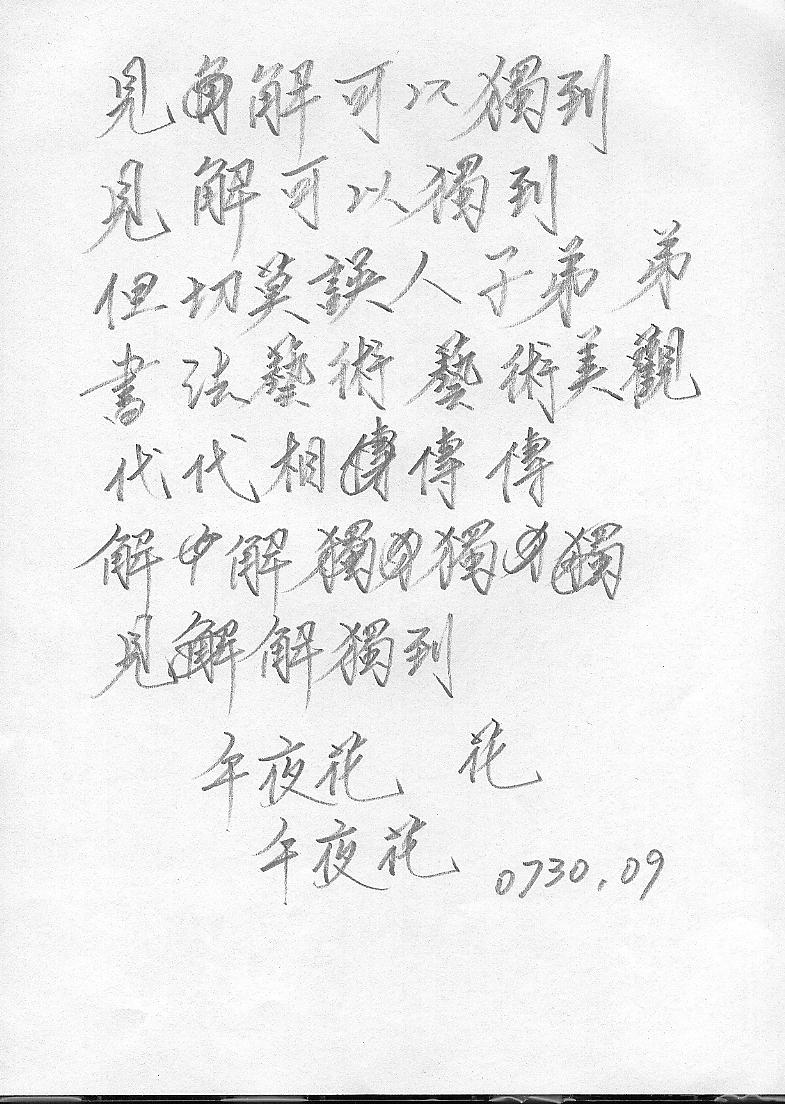 見角解可以獨到
見解可以獨到
但切莫誤人子弟 弟
書法藝術 藝術美觀
代代相傳傳傳
解中解獨獨獨
見解解獨到
午夜花 花
午夜花 0730.09